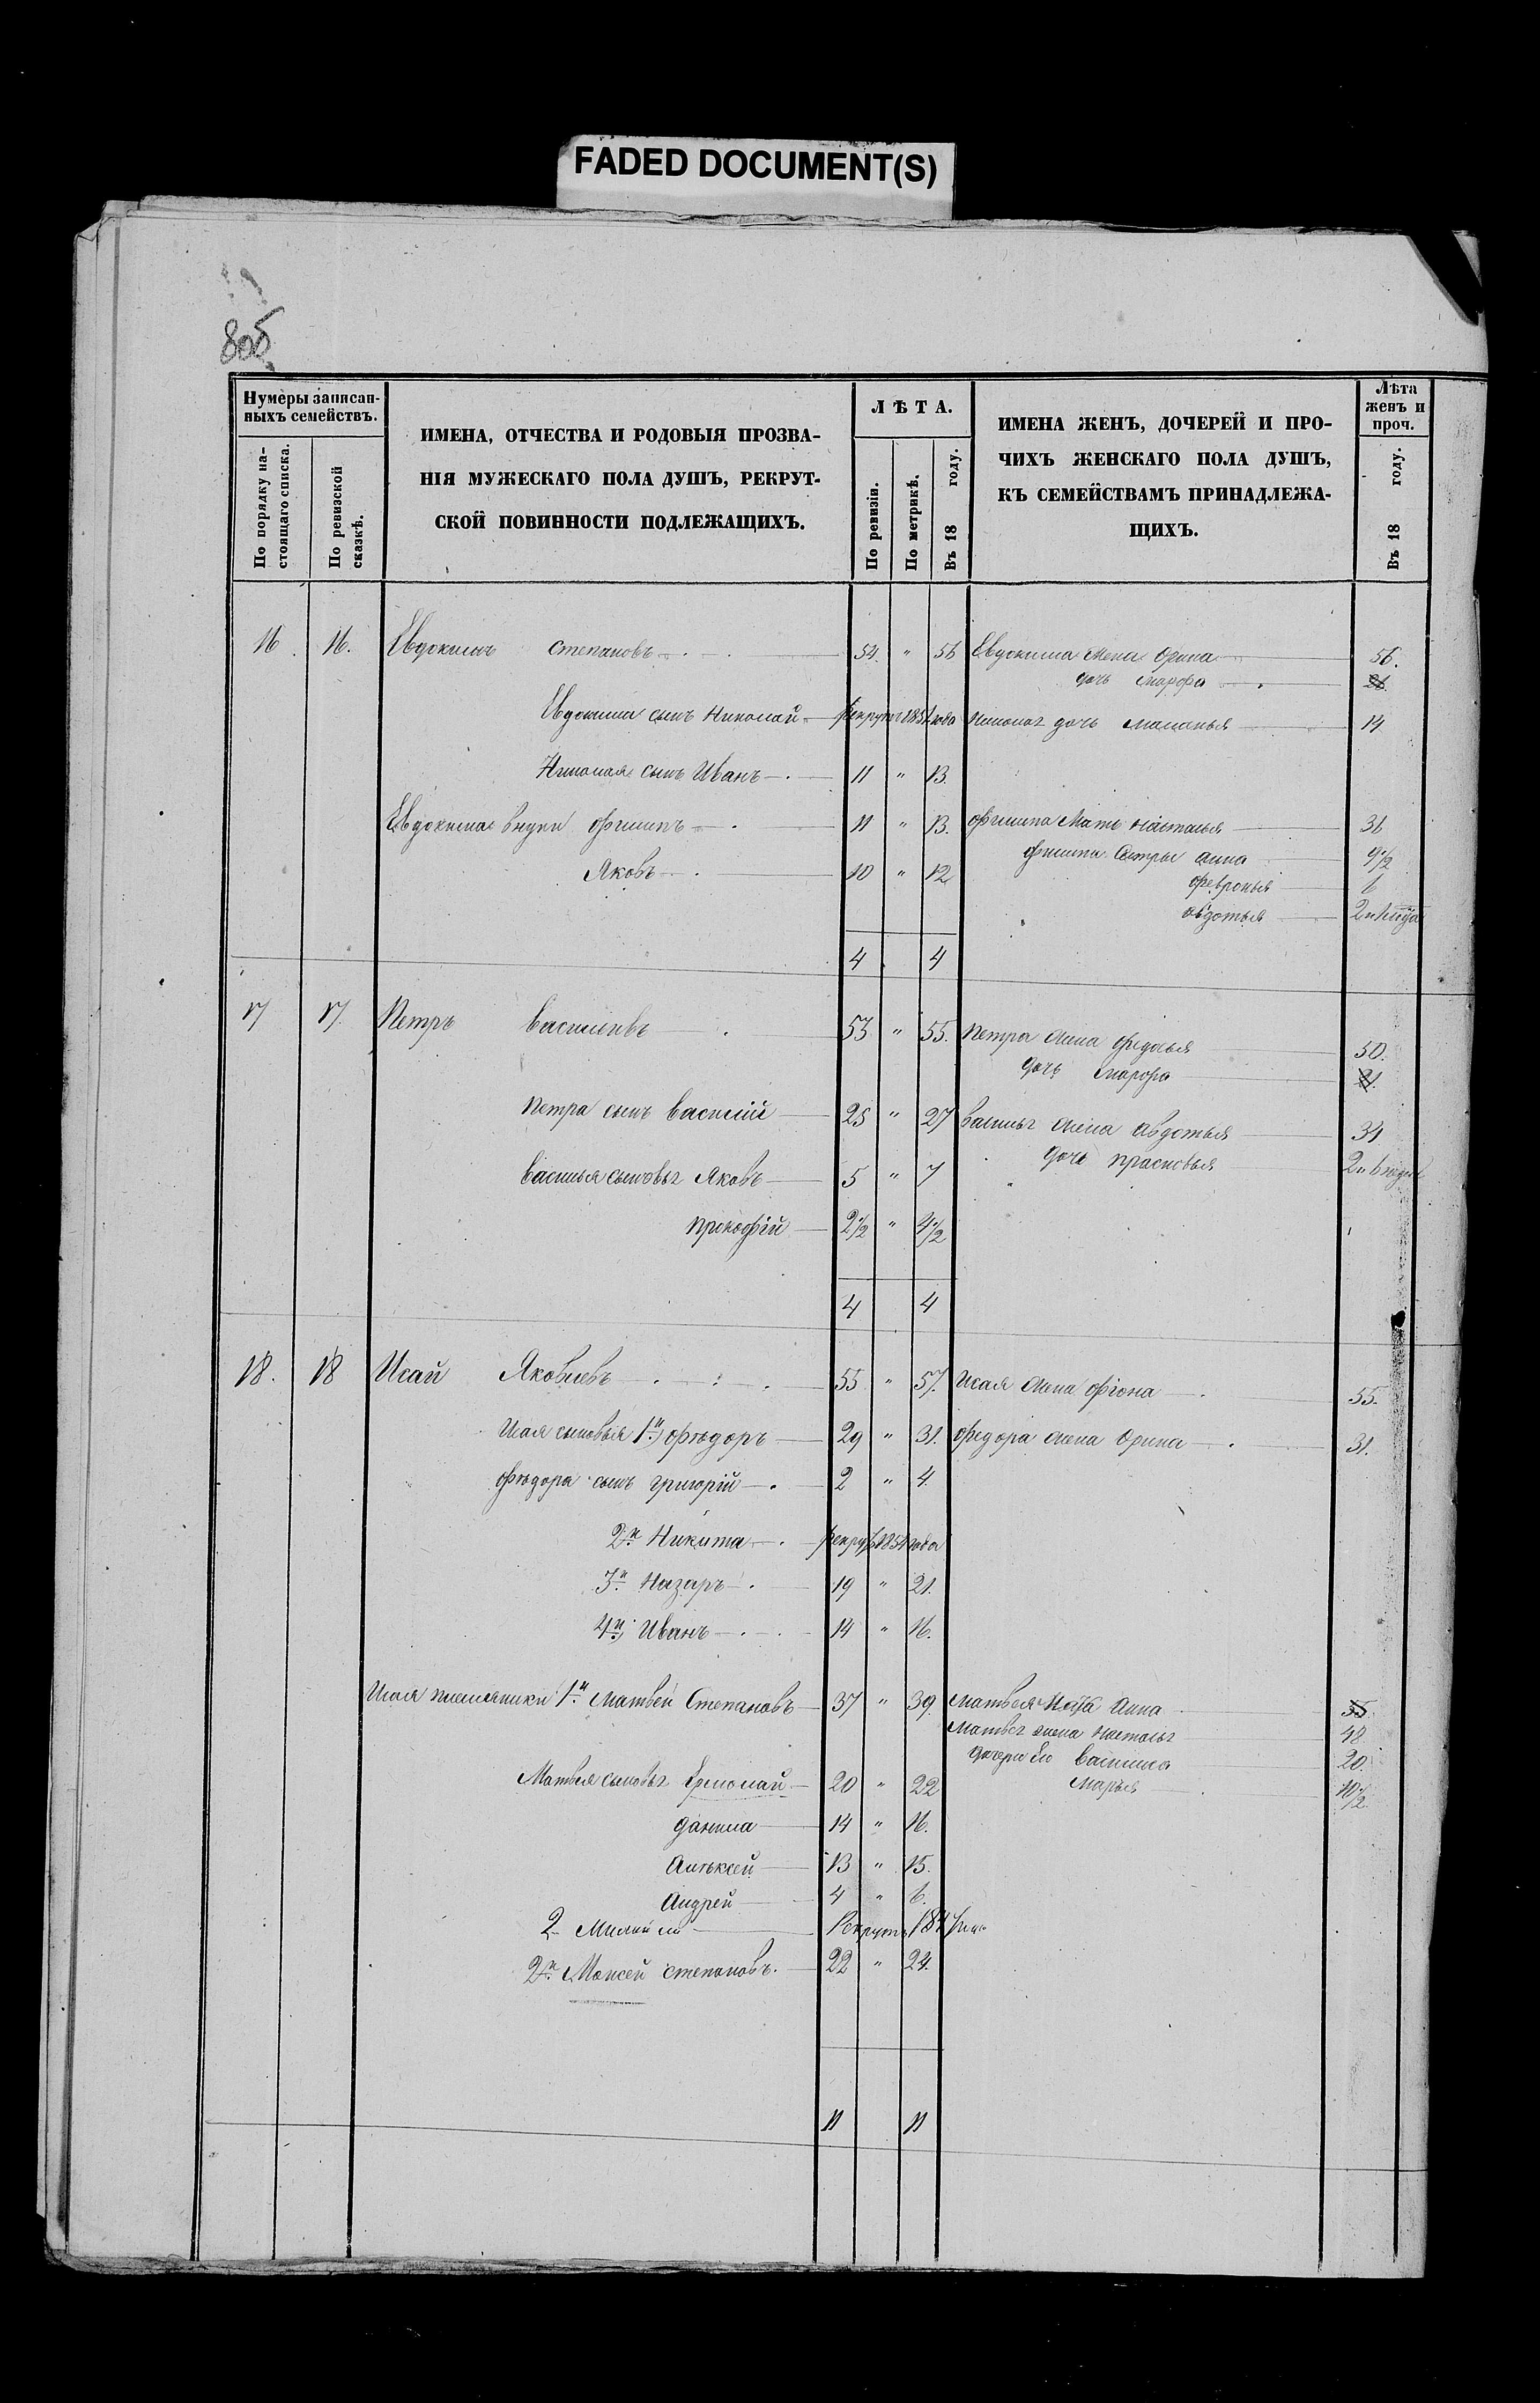 FADED DOCUMENT(S)
805
Нумеры записан-
ныхъ семействъ.
По порядку на-
стоящаго списка.
По ревизской
сказкѣ.
ИМЕНА, ОТЧЕСТВА И РОДОВЫЯ ПРОЗВА-
НІЯ МУЖЕСКАГО ПОЛА ДУШЪ, РЕКРУТ-
СКОЙ ПОВИННОСТИ ПОДЛЕЖАЩИХЪ.
ЛѢТА.
По ревизіи.
По метрикѣ.
Въ 18 году.
ИМЕНА ЖЕНЪ, ДОЧЕРЕЙ И ПРО-
ЧИХЪ ЖЕНСКАГО ПОЛА ДУШЪ,
КЪ СЕМЕЙСТВАМЪ ПРИНАДЛЕЖА-
ЩИХЪ.
Лѣта
женъ и
проч.
Въ 18 году.
16. 16. Евдокимъ Степановъ 54. " 56 Евдокима жена Орина 56.
дочь Марфа
Евдокима сынъ Николай рекрутъ 1854 года дочь Маланья 14
Николая сынъ Иванъ 11 " 13.
Евдокима внуки Филипъ 11 " 13. Филипа Мать Настасья 36
Яковъ 10 " 12 Филипа Сестры Анна 9 1/2
Февронья 6
Авдотья
4 4
17 17. Петръ Васильевъ 53 " 55. Петра жена Федосья 50.
дочь Марфа 21.
Петра сынъ Василій 25 " 27 жена Авдотья 34
Василья сыновья Яковъ 5 " 7 дочь Прасковья
Прокофій 2 1/2 " 4 1/2
4 4
18. 18 Исай Яковлевъ 55 " 57. Исая жена Фіона 55.
Исая сыновья 1й Фѣдоръ 29 " 31. Федора жена Орина 31.
Фѣдора сынъ Григорій 2 " 4.
2й Никита рекрутъ 1854 года
3й Назаръ 19 " 21.
4й Иванъ 14 " 16.
Исая племяники 1й Матвей Степановъ 37 " 39. Матвея Анна 55.
жена 48
дочери Его Василиса 20.
Матвея сыновья Ермолай 20 " 22 Марья 10 1/2
Данила 14 " 16.
Алѣксей 13 " 15.
Андрей 4 " 6.
2 Рекрутъ
2й Моисей Степановъ. 22 " 24.
11 11